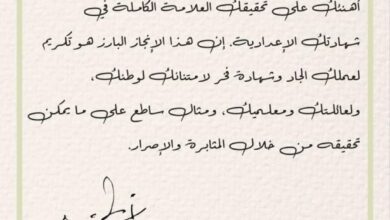 أهنئك على تحقيقك العلامة الكاملة في
شهادتك الإعدادية. إن هذا الإنجاز البارز هو تكريم
لعملك الجاد وشهادة فخر لامتنانك لوطنك،
ولعائلتك ومعلميك، ومثال ساطع على ما يمكن
تحقيقه من خلال المثابرة والإصرار.